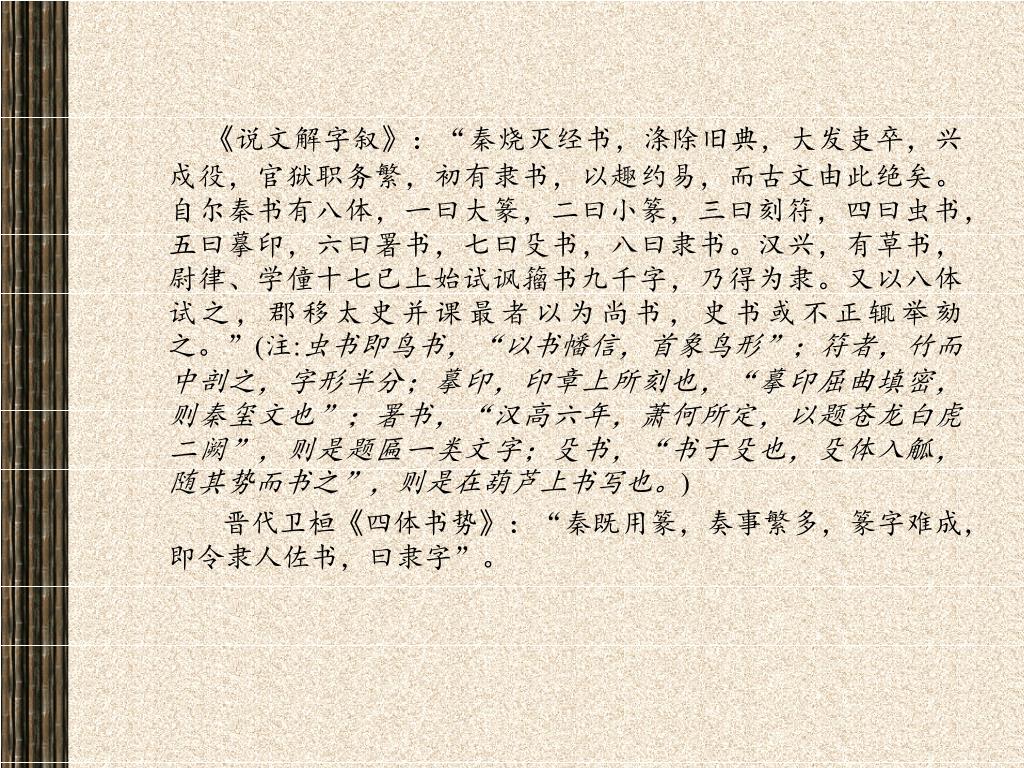 《说文解字叙》：“秦烧灭经书，涤除旧典，大发吏卒，兴
戍役，官狱职务繁，初有隶书，以趣约易，而古文由此绝矣。
自尔秦书有八体，一曰大篆，二曰小篆，三曰刻符，四曰虫书，
五曰摹印，六曰署书，七曰殳书，八曰隶书。汉兴，有草书，
尉律、学僮十七已上始试讽籀书九千字，乃得为隶。又以八体
试之，郡移太史并课最者以为尚书，史书或不正辄举劾
之。”(注:虫书即鸟书，“以书幡信，首象鸟形”；符者，竹而
中剖之，字形半分；摹印，印章上所刻也，“摹印屈曲填密，
则秦玺文也”；署书，“汉高六年，萧何所定，以题苍龙白虎
二阙”，则是题匾一类文字；殳书，“书于殳也，殳体入觚，
随其势而书之”，则是在葫芦上书写也。)
晋代卫桓《四体书势》：“秦既用篆，奏事繁多，篆字难成，
即令隶人佐书，曰隶字”。